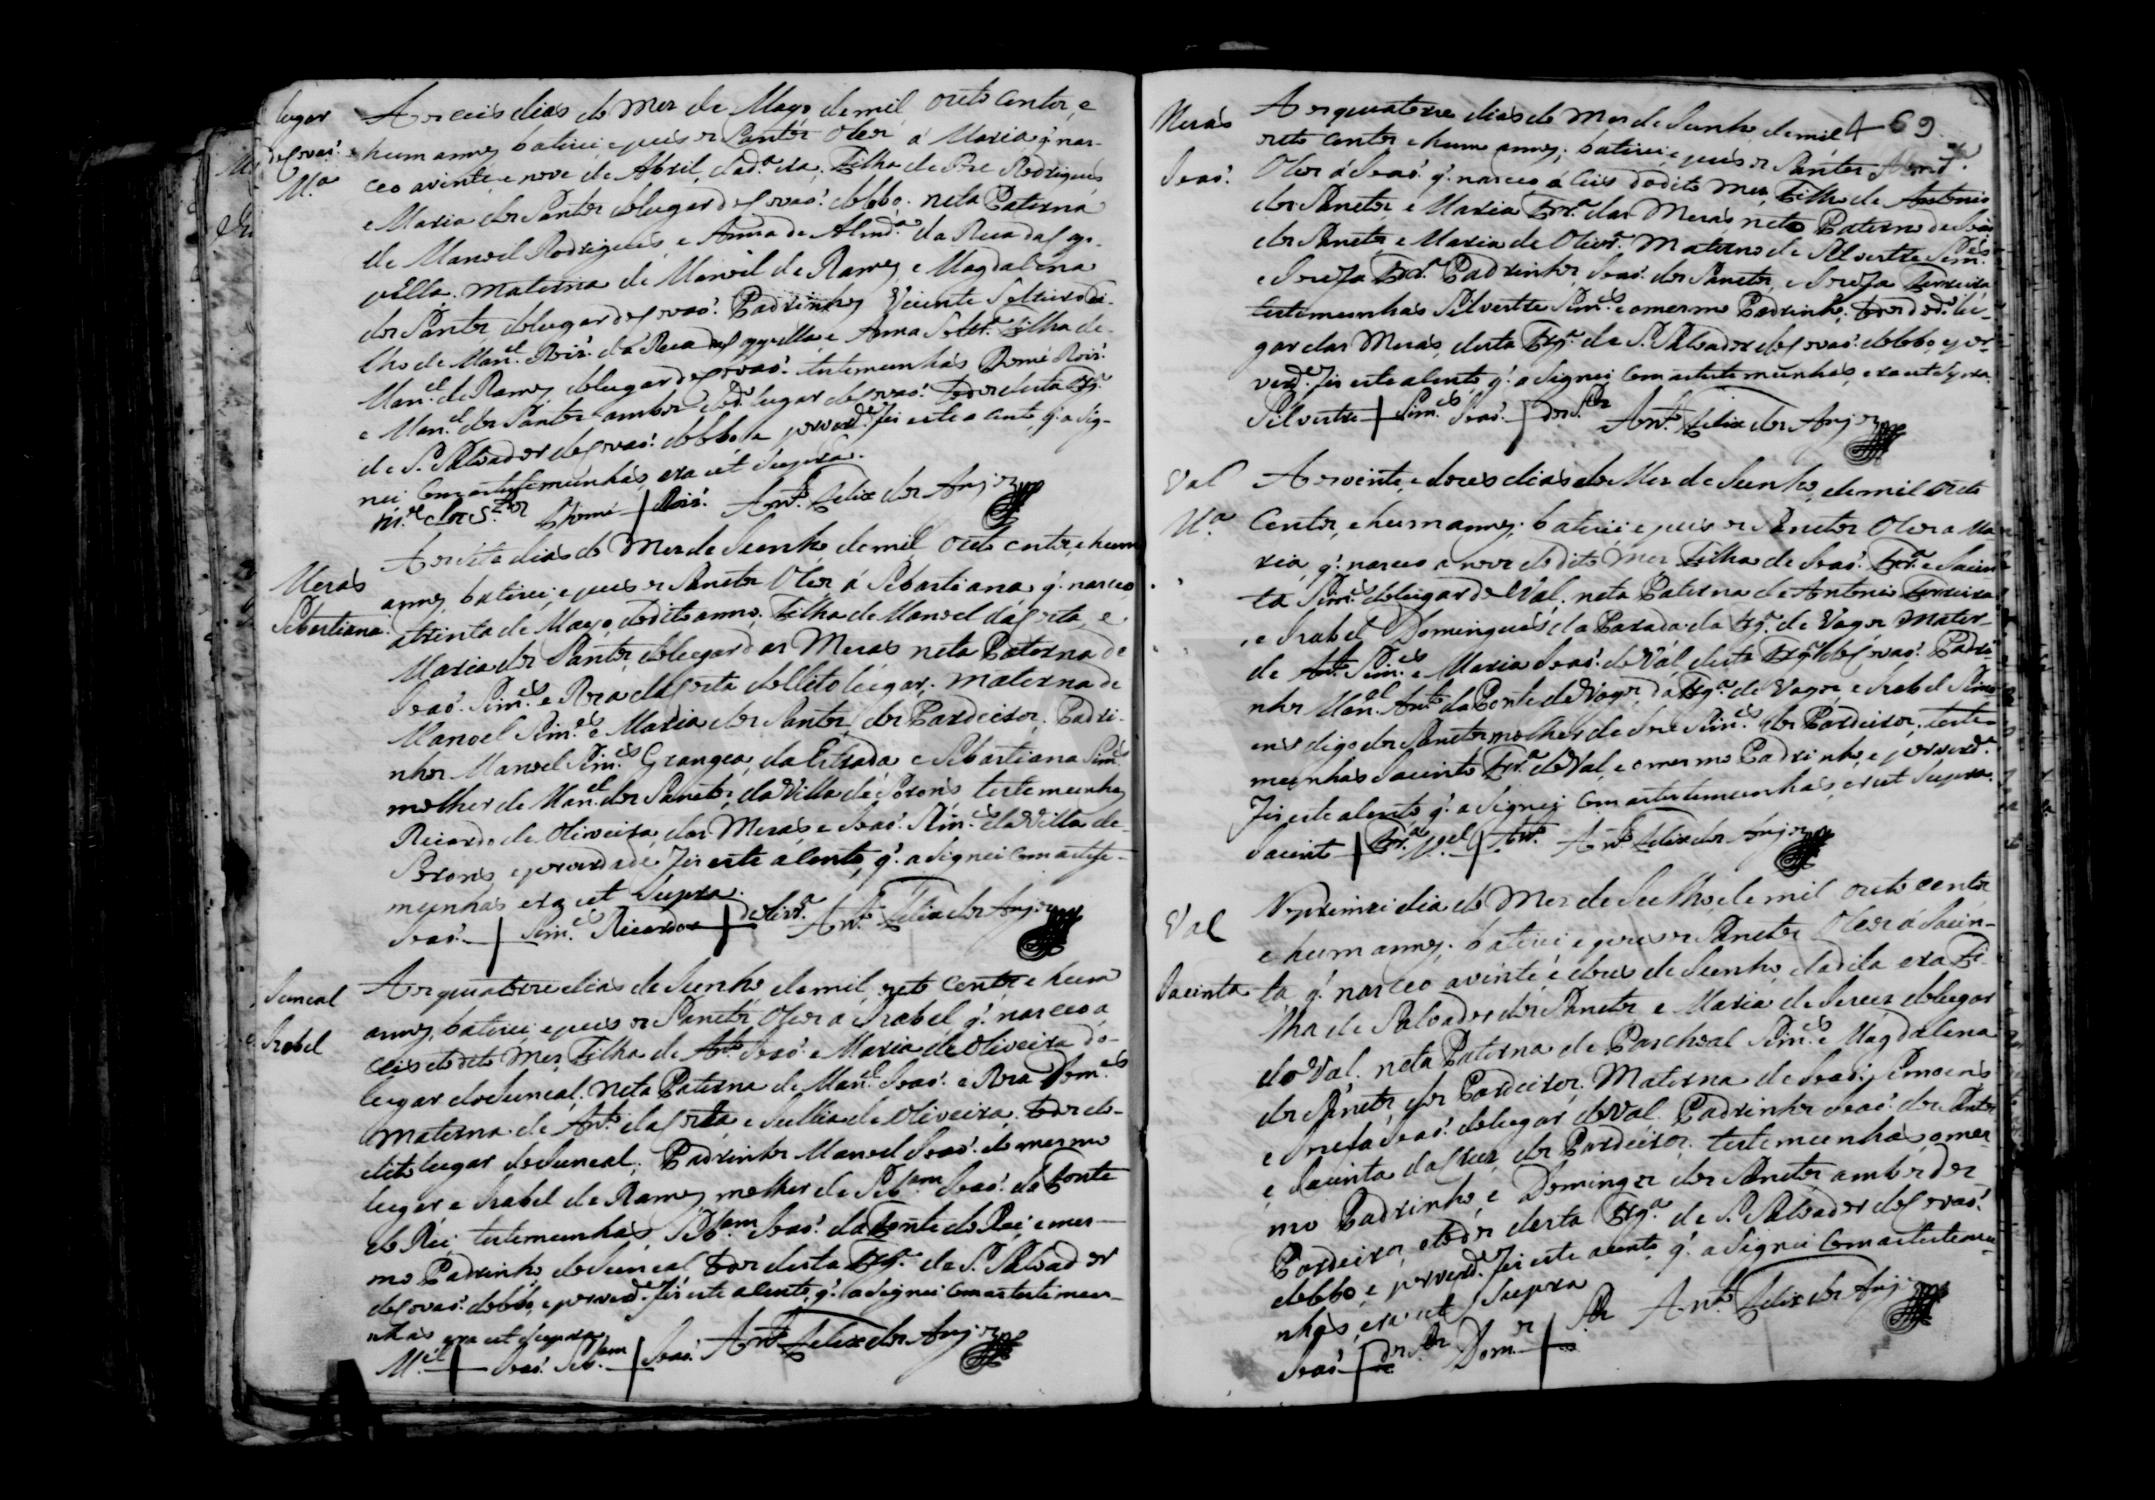 lugar
de Covaõ.
M.ª
Aos ceis dias do Mes de Mayo de mil outo centos, e
hum annos, batizei, e puis os Santos Oleos á Maria q̃. nas-
ceo a vinte e nove de Abril, da d.ª era, Filha de Joze Rodrigues
e Maria dos Santos do lugar de Covaõ. do Lobo. neta Paterna
de Manoel Rodrigues, e Anna de Almd.ª da Rua da Cap-
pella. Materna de Manoel de Ramos e Magdalena
dos Santos, do lugar de Covaõ. Padrinhos Vicente Solteiro Fi-
lho de Man.el Roiz. da Rua da Cappella e Anna Soltr.ª Filha de
Man.el de Ramos do lugar de Covaõ. testemunhas Thomé Roiz.
e Man.el dos Santos ambos do d.º lugar de Covaõ. todos desta Frg.ª
de S. Salvador de Covaõ. do Lobo, e por verd.e fis este acento, q̃. asig-
nei Com as testemunhas, era ut Supra.
M.el dos S.tos Thomé + Roiz. Ant.º Felix dos Anjos
Mesas
Sebastiana.
Aos sete dias do Mes de Junho de mil outo centos, e hum
annos, batizei, e puis os Sanctos Oleos á Sebastiana q̃. nasceo
a trinta de Mayo, do dito anno, Filha de Manoel da Costa, e
Maria dos Santos, do lugar das Mesas neta Paterna de
Joaõ. Sim.es e Roza da Costa do dito lugar. Materna de
Manoel Sim.es e Maria dos Santos, dos Cardeiros. Padri-
nhos Manoel Sim.es Grangea, da Estrada e Sebastiana Sim.es
molher de Man.el dos Sanctos, da Villa de Sorons testemunhas
Ricardo de Oliveira, das Mesas, e Joaõ. Sim.es da Villa de
Sorons, e por verdade fis este acento, q̃. asignei Com as teste-
munhas era ut Supra.
Joaõ. + Sim.es Ricardo + de Olivr.ª Ant.º Felix dos Anjos
Juncal
Izabel
Aos quatorze dias de Junho, de mil, outo centos e hum
annos, batizei, e puis os Sanctos Oleos a Izabel q̃. nasceo a
ceis do dito Mes, Filha de Ant.º Joaõ. e Maria de Oliveira do
lugar do Juncal, Neta Paterna de Man.el Joaõ. e Roza Dom.es
Materna de Ant.º da Costa e Jullia de Oliveira. todos do
dito lugar do Juncal. Padrinhos Manoel Joaõ. do mesmo
lugar e Izabel de Ramos, molher de Seb.am Joaõ. da Fonte
do Rei, testemunhas, Seb.am Joaõ. da Fonte do Rei, e mes-
mo Padrinho, do Juncal todos desta Frg.ª de S. Salvador
de Covaõ. do Lobo, e por verd.e fis este acento, q̃. asignei Com as testemu-
nhas era ut supra.
M.el + Joaõ. Seb.am + Joaõ. Ant.º Felix dos Anjos
469
Mesas
Joaõ.
Aos quatorze dias do Mes de Junho, de mil
outo centos e hum annos; batizei, e puis os Santos
Oleos á Joaõ. q̃. nasceo á ceis do dito Mes, Filho de Antonio
dos Sanctos, e Maria Frr.ª das Mesas, neto Paterno de Joaõ
dos Sanctos e Maria de Olivr.ª Materno de Silvestre Sim.es
e Jozefa Frr.ª Padrinhos, Joaõ. dos Sanctos, e Jozefa Ferreira
testemunhas Silvestre Sim.es e o mesmo Padrinho, todos do d.º lu-
gar das Mesas, desta Frg.ª de S. Salvador de Covaõ. do Lobo, e por
verd.e fis este acento, q̃. asignei Com as testemunhas, era ut supra.
Silvestre + Sim.es Joaõ. + dos S.tos Ant.º Felix dos Anjos
Val
M.ª
Aos vinte, e dous dias do Mes de Junho, de mil outo
Centos, e hum annos; batizei e puis os Sanctos Oleos a Ma-
ria, q̃. nasceo a nove do dito Mes, Filha de Joaõ. Frr.ª e Jacin-
ta Sim.es do lugar do Val. neta Paterna de Antonio Ferreira
e Izabel Domingues da Parada da Frg.ª de Vagos Mater-
de Ant.º Sim.es e Maria Joaõ. do Val, desta Frg.ª de Covaõ. Padri-
nhos Man.el Ant.º da Ponte de Vagos, da Frg.ª de Vagos, e Izabel Simo-
ens digo dos Sanctos molher de Joze Sim.es dos Cardeiros, teste-
munhas Jacinto Frr.ª do Val, e o mesmo Padrinho, e por verd.e
Fis este acento, q̃. asignei Com as testemunhas, er ut Supra.
Jacinto + Frr.ª M.el + Ant.º Ant.º Felix dos Anjos
Val
Jacinta
No primeiro dia do Mes de Julho, de mil outo centos
e hum annos; batizei e puis os Sanctos Oleos á Jacin-
ta, q̃. nasceo a vinte, e dous de Junho, da dita era Fi-
lha de Salvador dos Sanctos e Maria de Jezus do lugar
do Val, neta Paterna de Paschoal Sim.es e Magdalena
dos Sanctos, dos Cardeiros, Materna de Joaõ. Simoens
e Jozefa Joaõ. do lugar do Val. Padrinhos Joaõ. dos Santos
e Jacinta da Cruz, dos Cardeiros. testemunhas, o mes-
mo Padrinho, e Domingos dos Sanctos ambos dos
Cardeiros, e todos desta Frg.ª de S. Salvador de Covaõ.
do Lobo, e por verd.e fis este acento, q̃. asignei Com as testemu-
nhas, era ut Supra
Joaõ. + dos S.tos Dom.os + S.tos Ant.º Felix dos Anjos